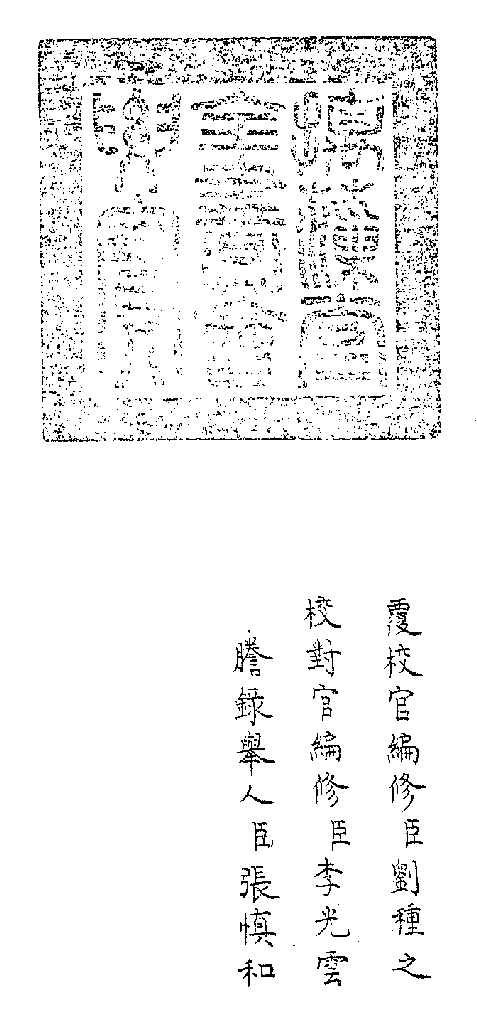 覆校官編修臣劉種之
校對官編修臣李光雲
謄錄舉人臣張慎和